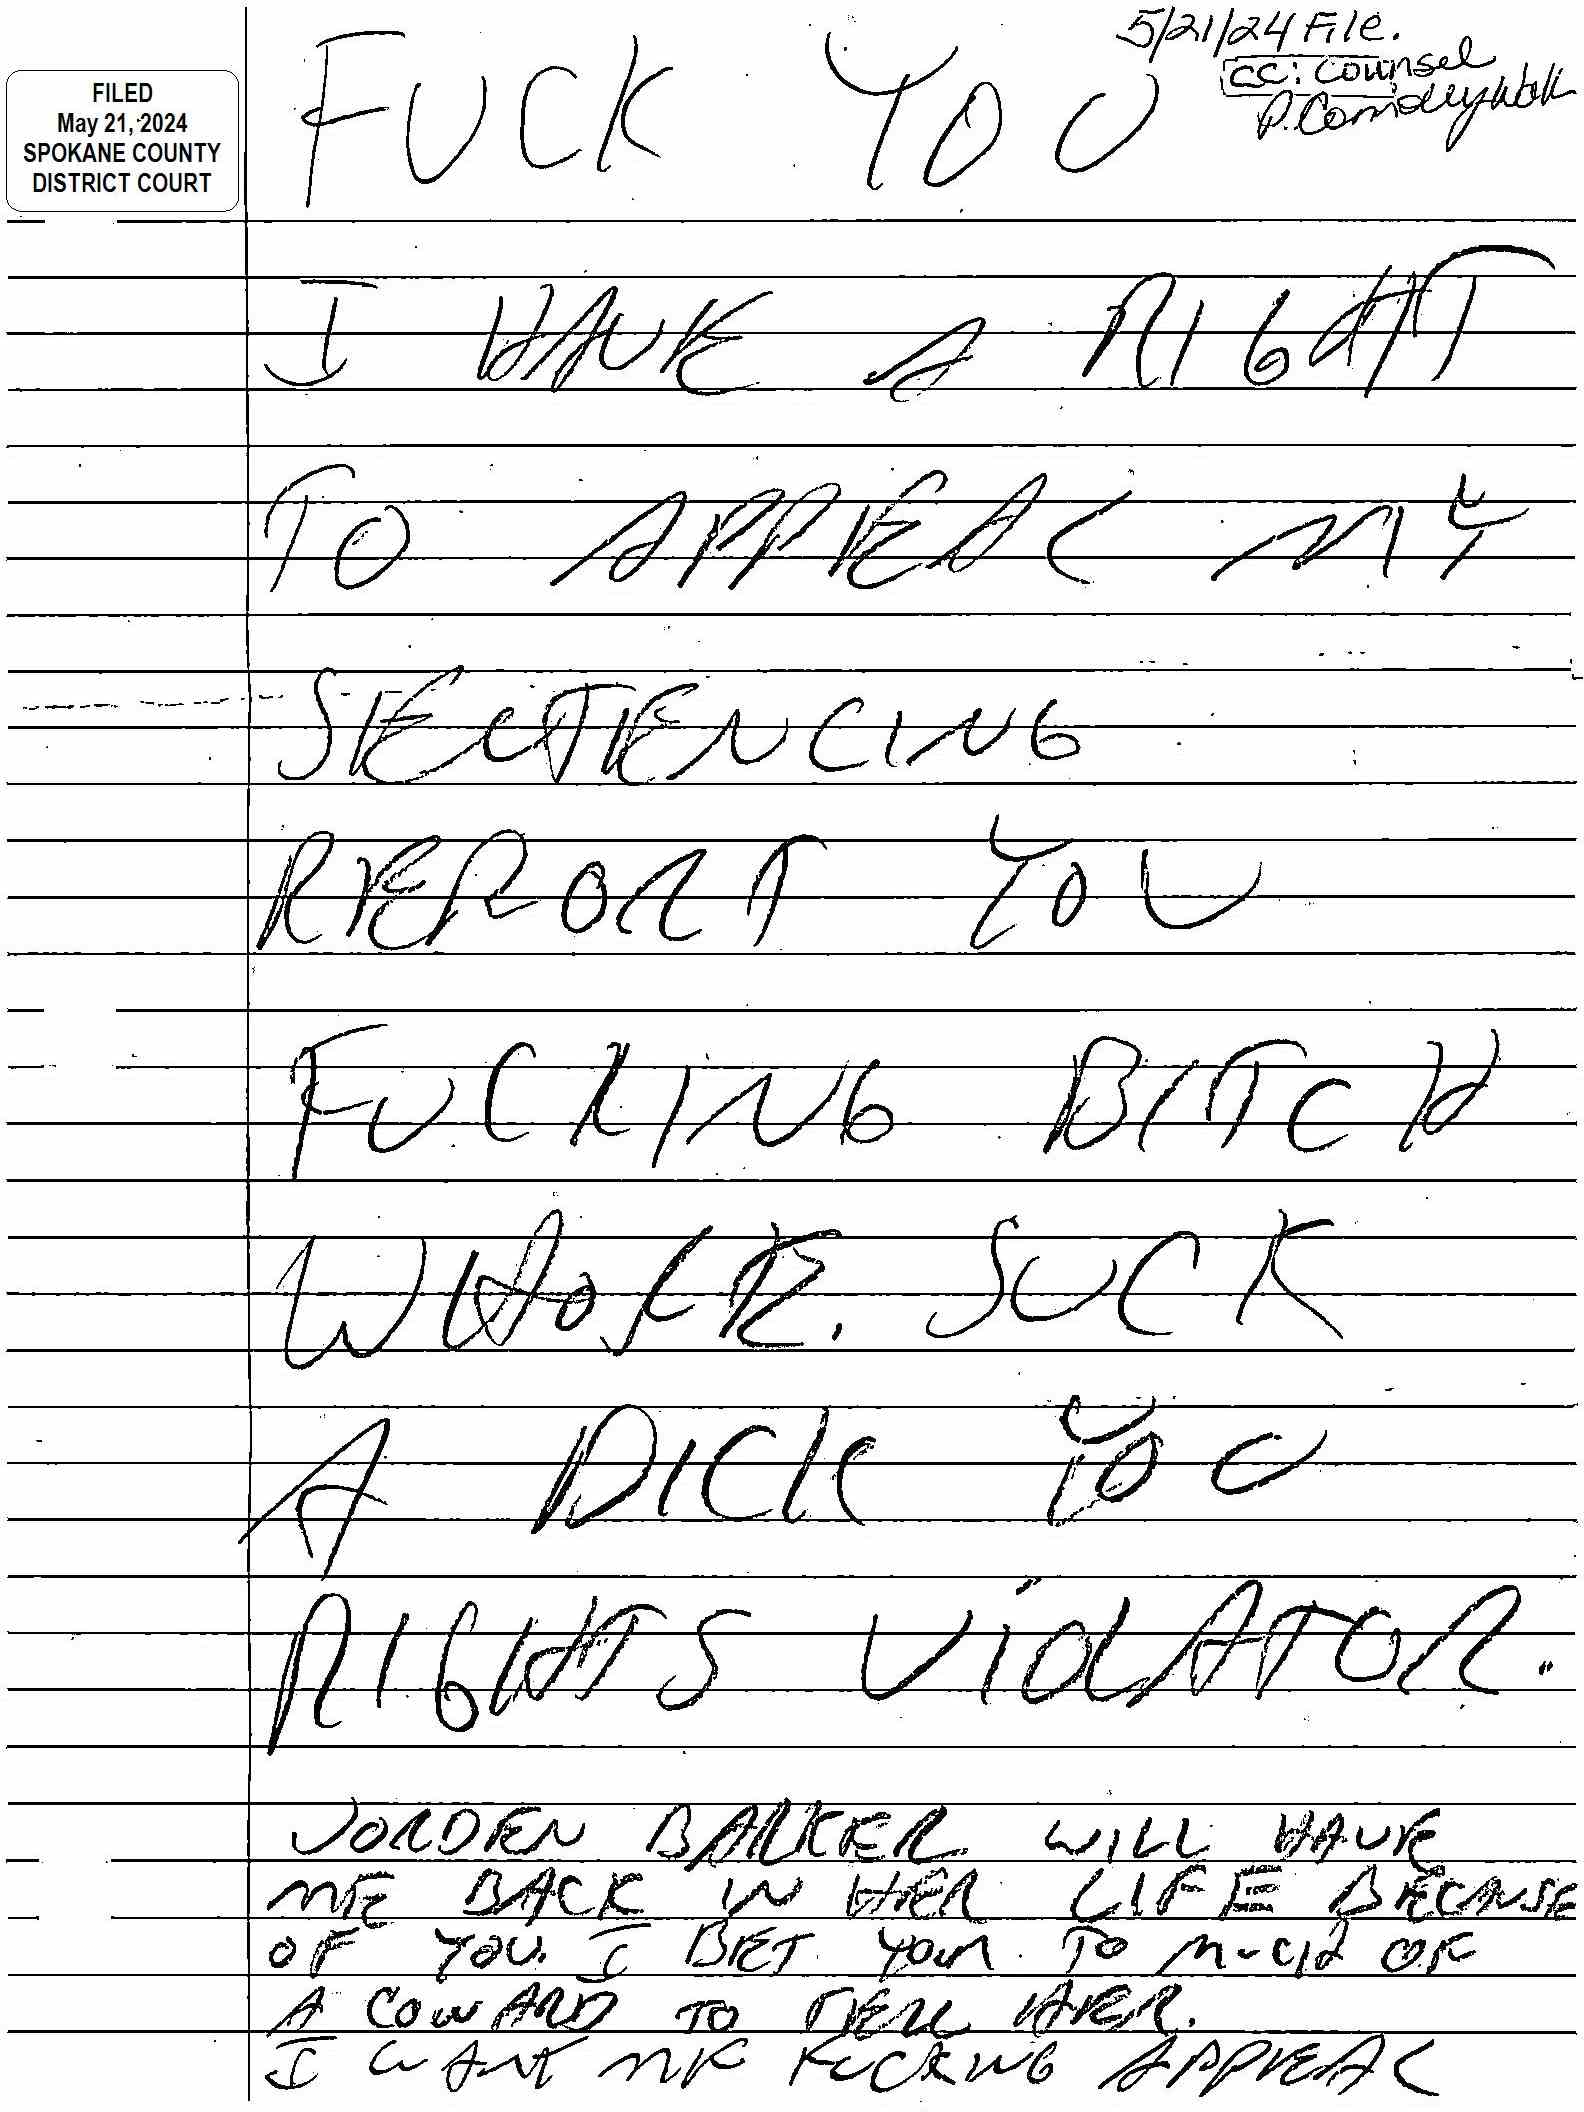 FUCK YOU
5/21/24 File.
cc: Counsel
FILED
May 21, 2024
SPOKANE COUNTY
DISTRICT COURT
I HAVE A RIGHT
TO APPEAL MY
SECTENCING
REPORT YOU
FUCKING BITCH
WHORE. SUCK
A DICK YOU
RIGHTS VIOLATOR.
JORDEN BARKER WILL HAVE
ME BACK IN HER LIFE BECAUSE
OF YOU. I BET YOUR TO MUCH OF
A COWARD TO TELL HER.
I WANT MY FUCKING APPEAL